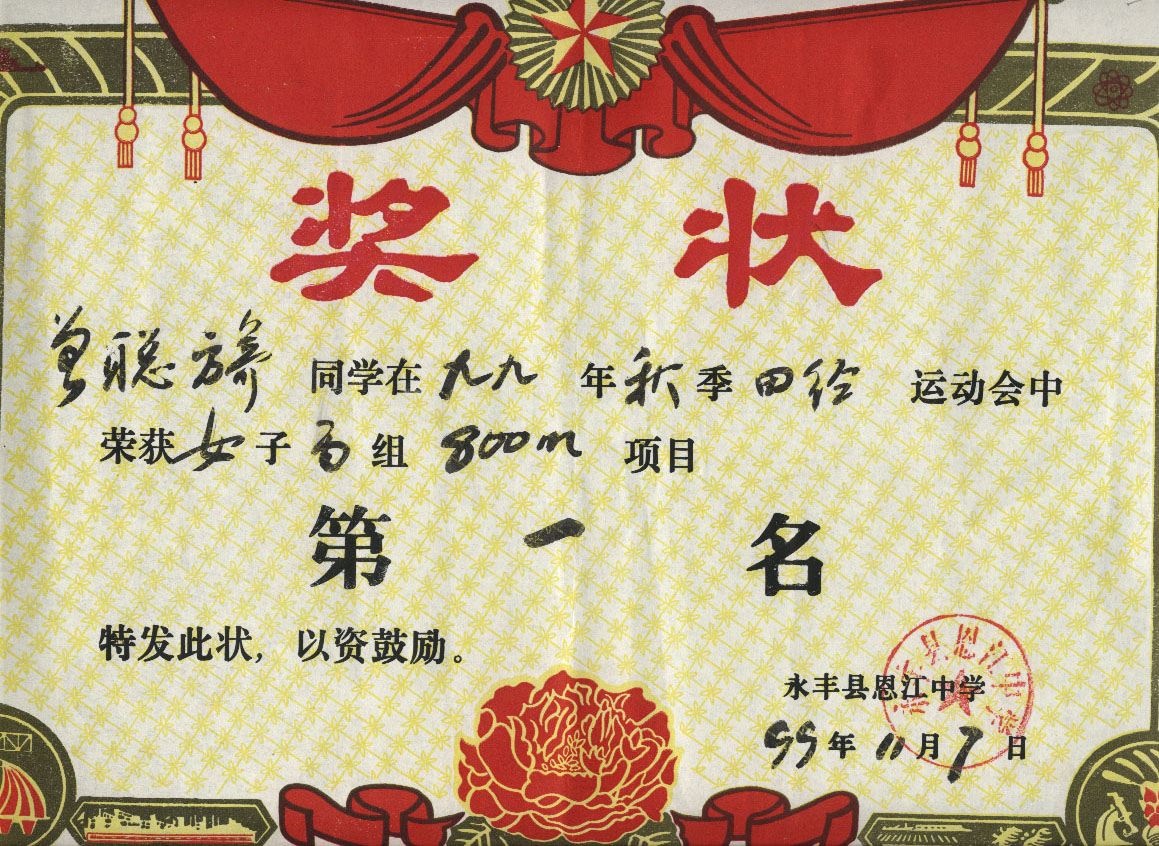 奖状
曾聪 同学在九九年秋季田径运动会中
荣获女子高组800m项目
第一名
特发此状，以资鼓励。
永丰县恩江中学
99年11月7日
县恩江中学